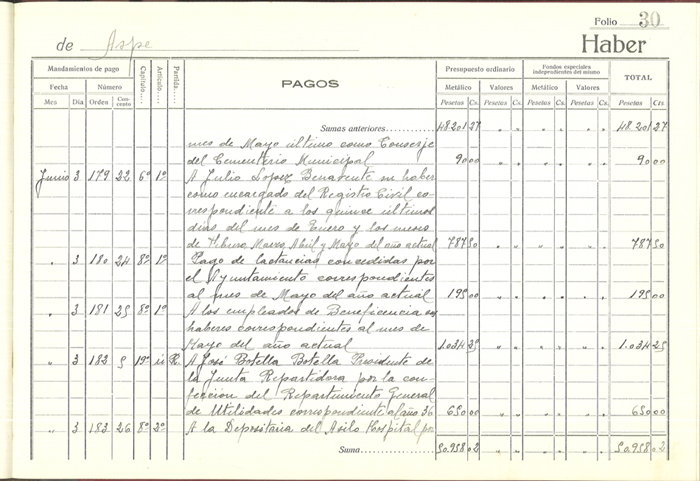 Folio 30
de Aspe Haber
Mandamientos de pago Capítulo. Artículo. Partida. PAGOS Presupuesto ordinario Fondos especiales independientes del mismo TOTAL
Fecha Número Metálico Valores Metálico Valores
Mes Día Orden Concepto Pesetas Cs. Pesetas Cs. Pesetas Cs. Pesetas Cs. Pesetas Cts.
Sumas anteriores 48.201 27 " " " " " " 48.201 27
mes de Mayo último como Conserje
del Cementerio Municipal 90 00 " " " " " " 90 00
Junio 3 179 22 6º 1º A Julio Lopez Benavente su haber
como encargado del Registro Civil co-
rrespondiente a los quince últimos
dias del mes de Enero y los meses
de Febrero, Marzo, Abril y Mayo del año actual 787 50 " " " " " " 787 50
" 3 180 24 8º 1º Pago de lactancias concedidas por
el Ayuntamiento correspondientes
al mes de Mayo del año actual 195 00 " " " " " " 195 00
" 3 181 25 8º 1º A los empleados de Beneficencia sus
haberes correspondientes al mes de
Mayo del año actual 1.034 25 " " " " " " 1.034 25
" 3 182 5 19º R. A José Botella Botella Presidente de
la Junta Repartidora por la con-
feccion del Repartimiento General
de Utilidades correspondiente al año 36 650 00 " " " " " " 650 00
" 3 183 26 8º 2º A la Depositaria del Asilo Hospital por
Suma 50.958 02 " " " " " " 50.958 02